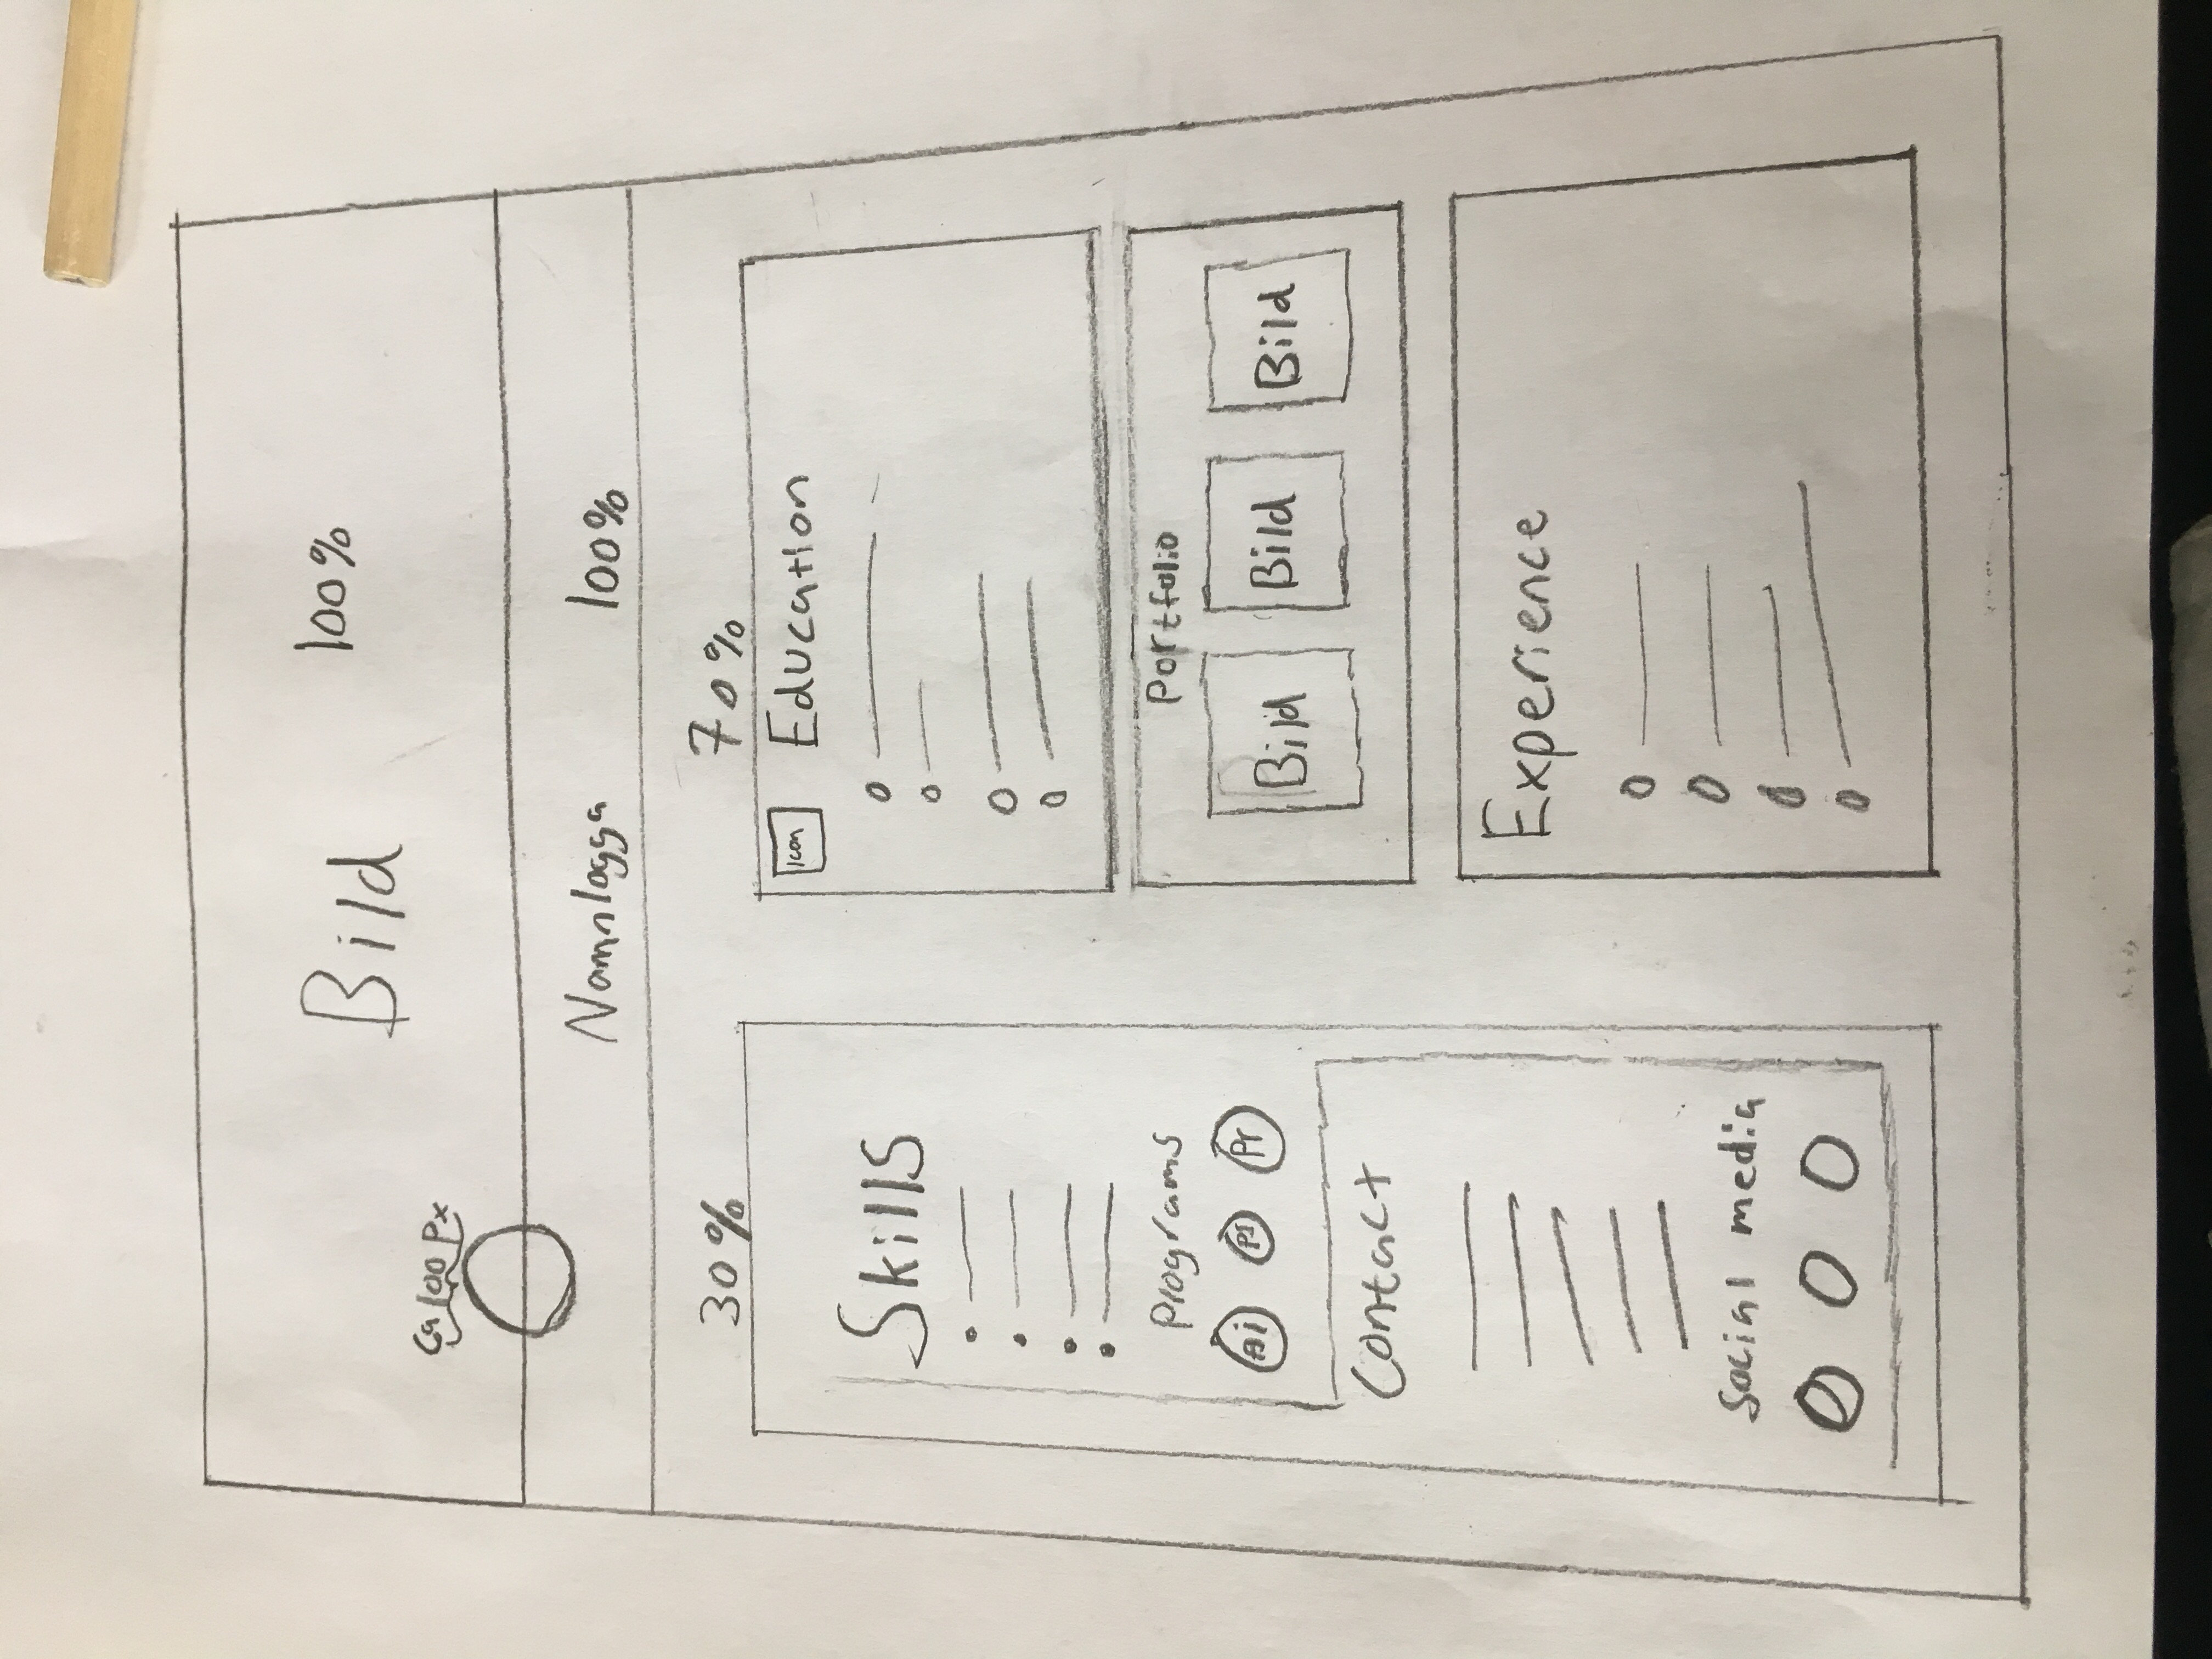 Bild 100%
Ca 100 Px
Namnlogga 100%
30%
Skills
Programs
Ai Ps Pr
Contact
Social media
70%
Icon Education
Portfolio
Bild Bild Bild
Experience